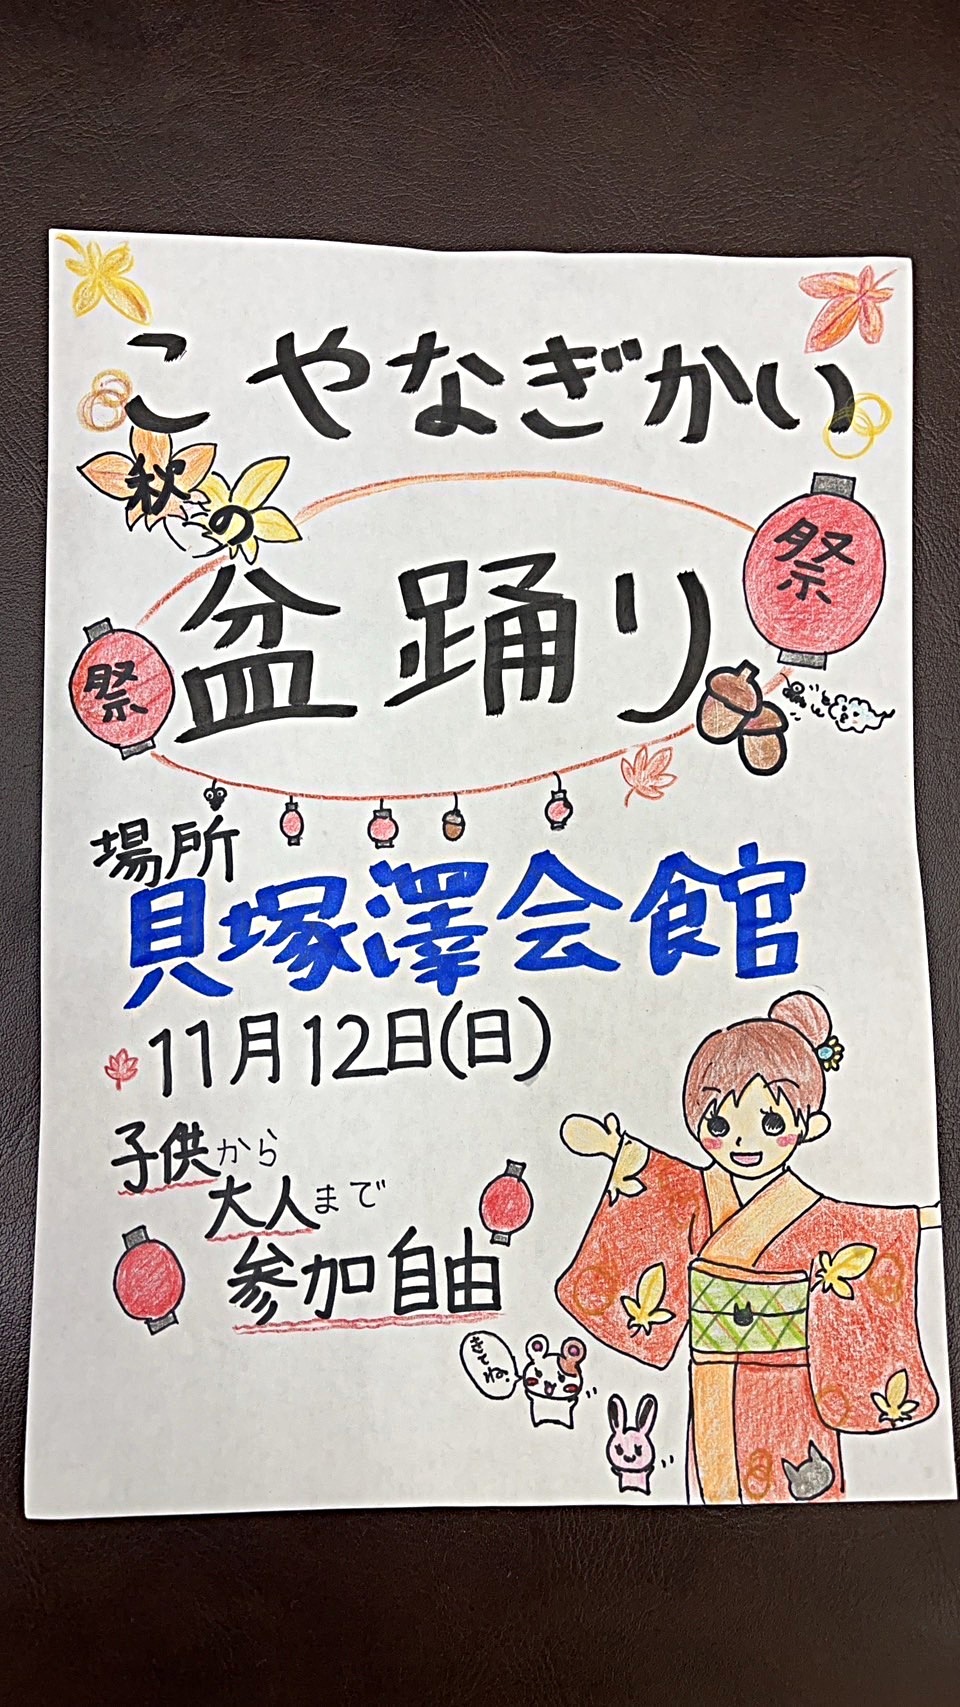 こやなぎかい
秋の
盆踊り
祭
祭
場所
貝塚澤会館
11月12日(日)
子供から
大人まで
参加自由
きてね!